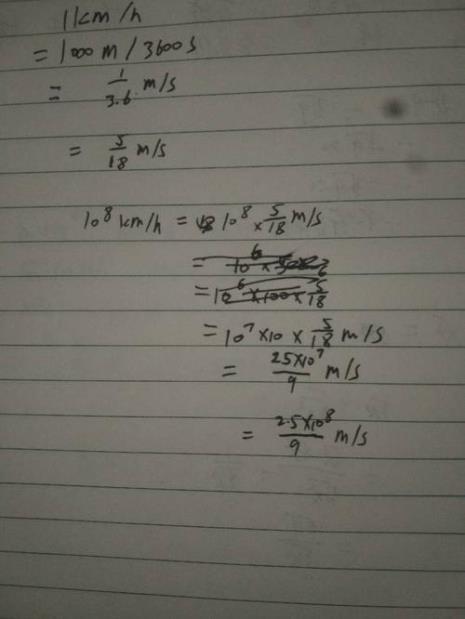 1km/h
= 1000 m / 3600 s
= 1/3.6 m/s
= 5/18 m/s
10⁸ km/h = 10⁸ × 5/18 m/s
= 10⁷ × 10 × 5/18 m/s
= 25×10⁷/9 m/s
= 2.5×10⁸/9 m/s